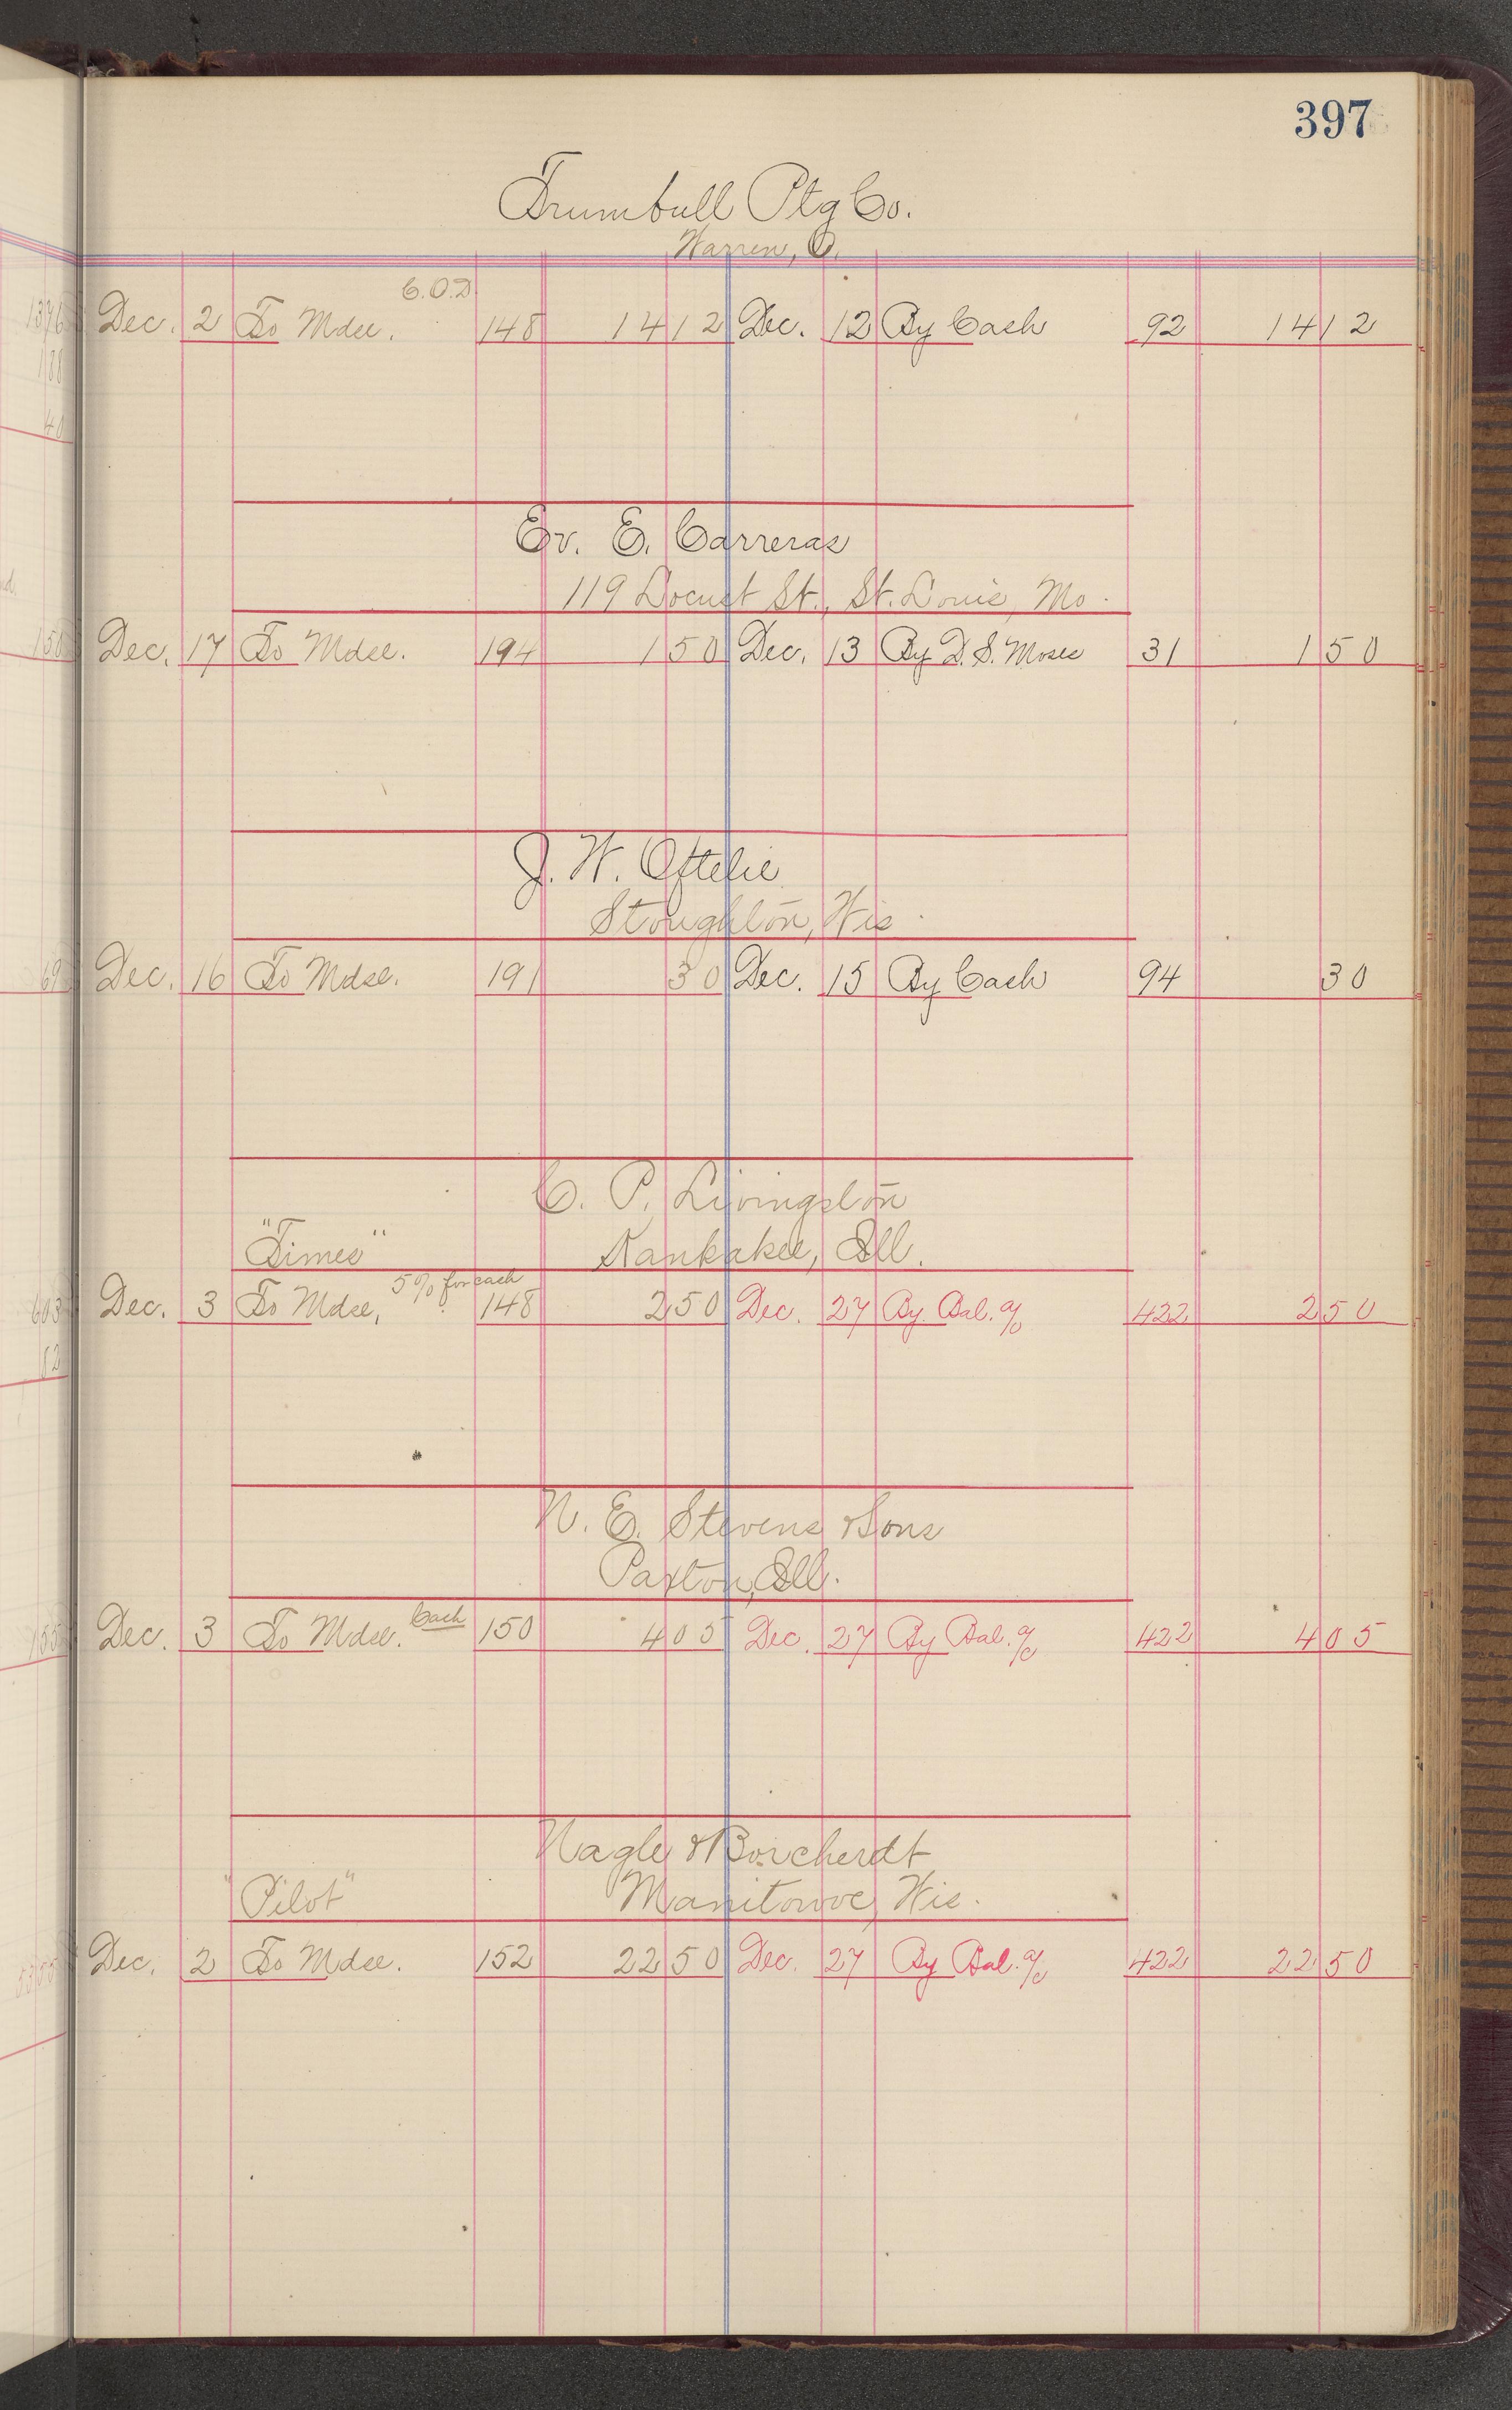 397
Trumbull Ptg Co.
Warren, O.
C.O.D.
Dec. 2 To Mdse. 148 14 12 Dec. 12 By Cash 92 14 12
Ev. E. Carreras
119 Locust St., St. Louis, Mo.
Dec. 17 To Mdse. 194 1 50 Dec. 13 By D. S. Moses 31 1 50
J. W. Oftelie
Stoughton, Wis.
Dec. 16 To Mdse. 191 30 Dec. 15 By Cash 94 30
C. P. Livingston
"Times" Kankakee, Ill.
5% for cash
Dec. 3 To Mdse. 148 2 50 Dec. 27 By Bal. a/c 422 2 50
N. E. Stevens & Sons
Paxton, Ill.
Dec. 3 To Mdse. Cash 150 4 05 Dec. 27 By Bal. a/c 422 4 05
Nagle & Borcherdt
"Pilot" Manitowoc, Wis.
Dec. 2 To Mdse. 152 22 50 Dec. 27 By Bal. a/c 422 22 50